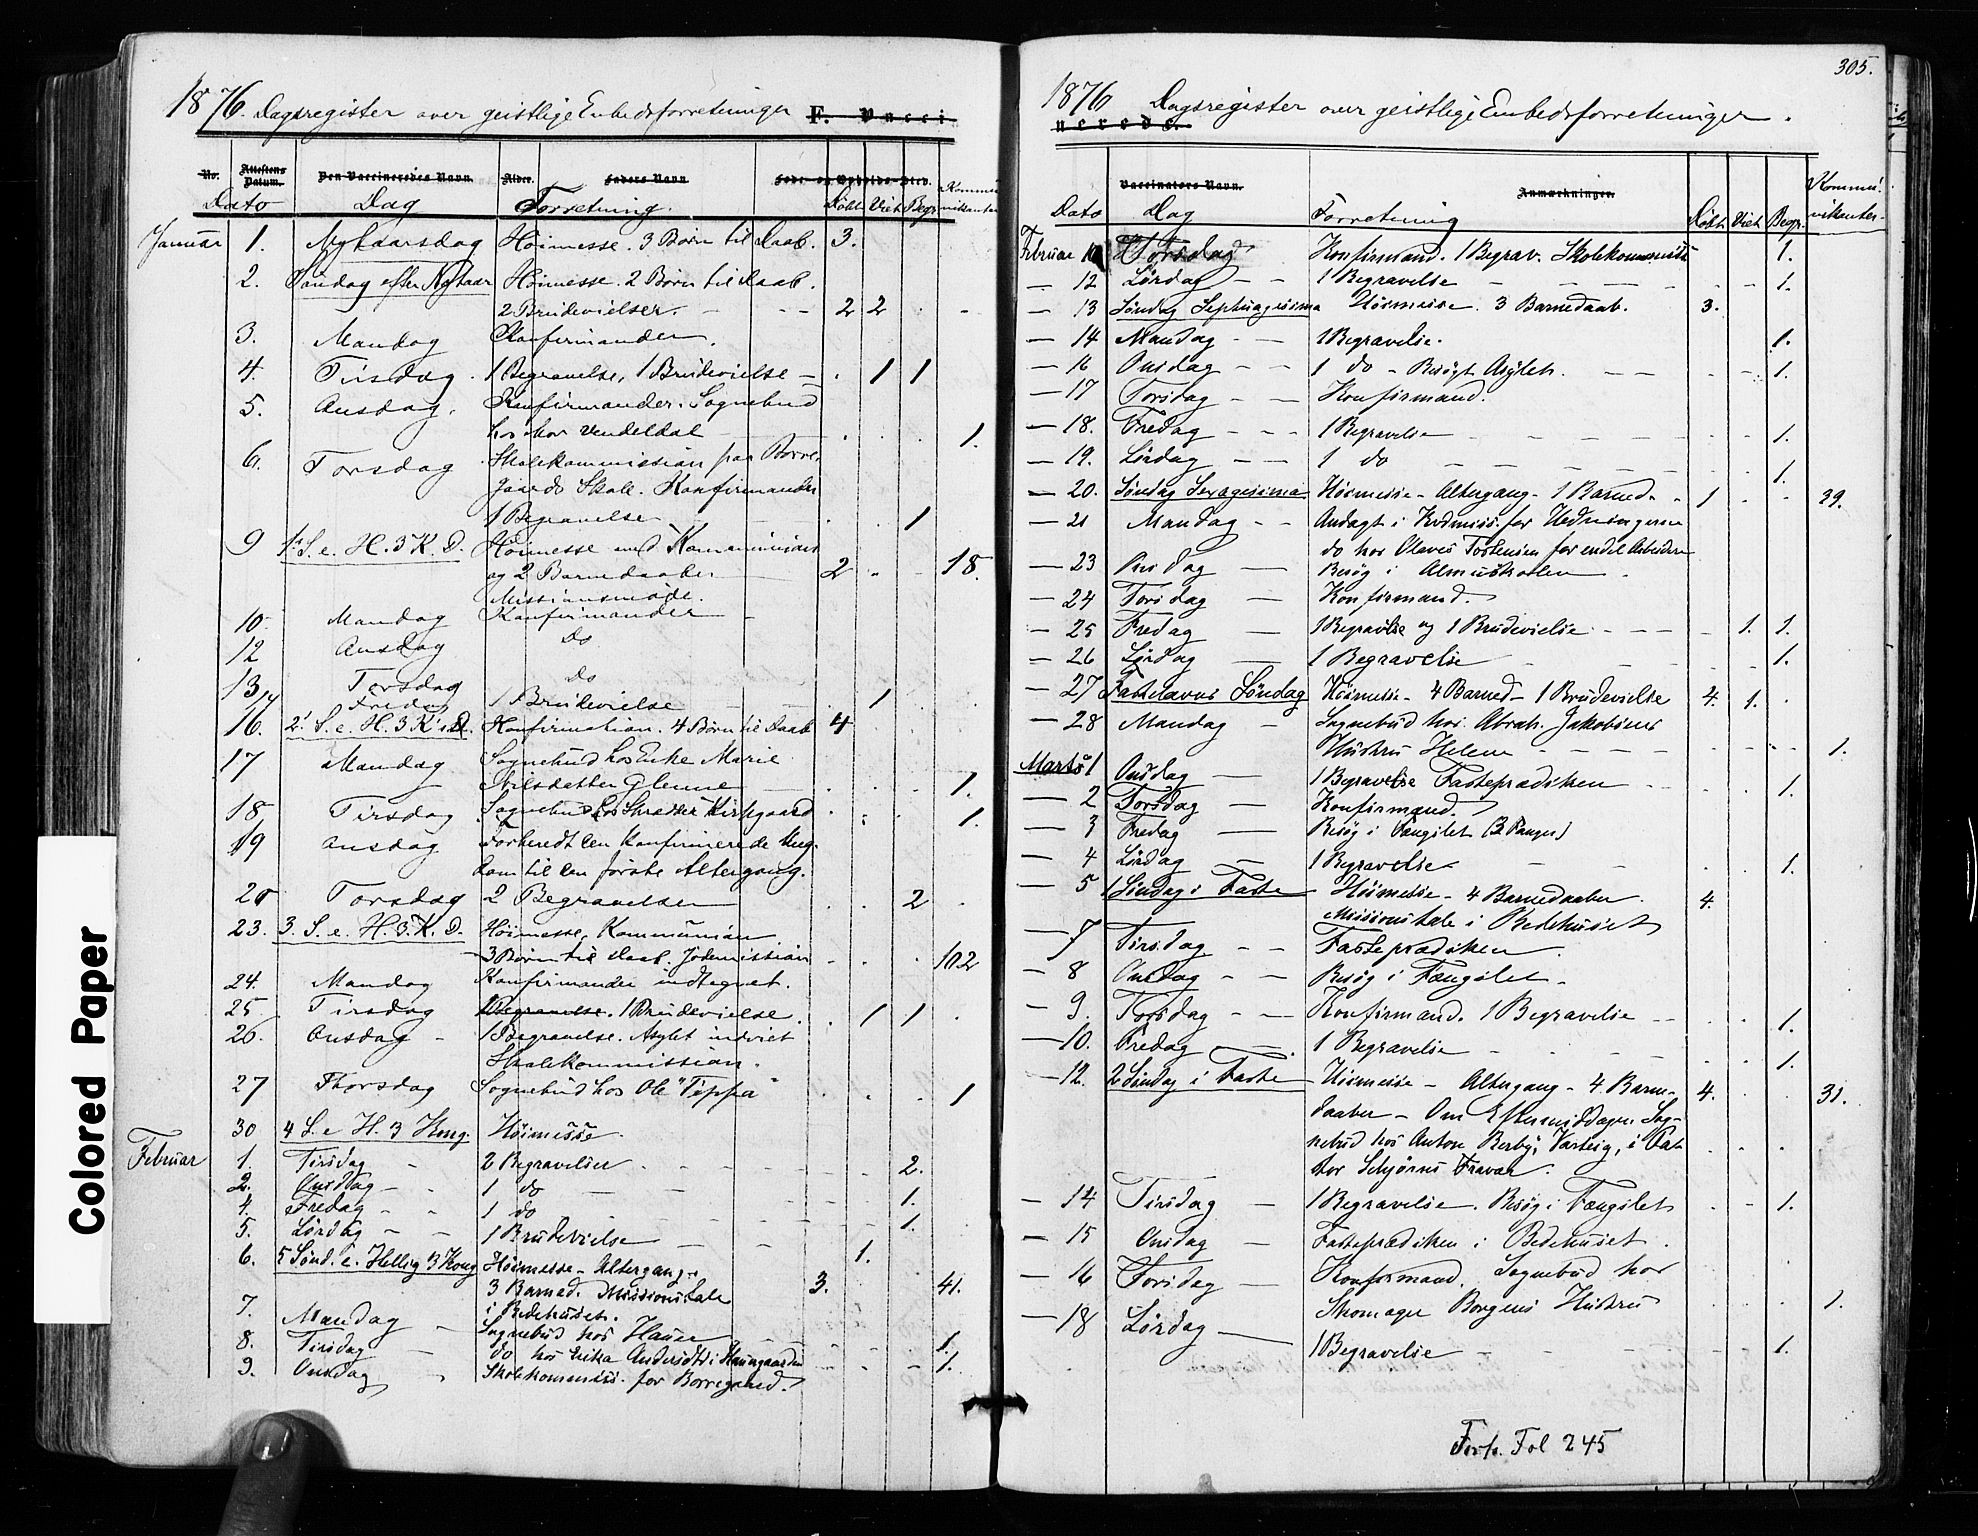 1876. Dagsregister over geistlige Embedsforretninger F. Vacci
No. Attestens Datum. Den Vaccineredes Navn. Alder. Faders Navn Føde- og Opholds-Sted.
Dato Dag Forretning. Døbt Viet Begr. Kommunikanter
Januar 1. Nytaarsdag Høimesse. 3 Børn til Daab. 3.
2. Søndag efter Nytaar Høimesse. 2 Børn til Daab.
2 Brudevielser. 2 2
3. Mandag Konfirmander.
4. Tirsdag. 1 Begravelse, 1 Brudevielse 1 1
5. Onsdag. Konfirmander. Sognebud
hos Mor Vendeldal 1.
6. Torsdag Skolekommission paa Borre-
gaards Skole. Konfirmander
1 Begravelse 1
9 1ste S. e. H. 3 K. D. Høimesse med Kommunion
og 2 Barnedaaber 2 18.
Missionsmøde.
10. Mandag Konfirmander
12 Onsdag Do
13 Torsdag do
14 Fredag 1 Brudevielse 1
16. 2. S. e. H. 3 K's D. Konfirmation. 4 Børn til Daab 4
17 Mandag Sognebud hos Enke Marie
Nilsdatter Glenne 1.
18 Tirsdag Sognebud hos Skrædder Kirkgaard 1.
19 Onsdag Forberedt den Konfirmerede Ung-
dom til den første Altergang.
20 Torsdag 2 Begravelser 2
23. 3. S. e. H. 3. K. D. Høimesse, Kommunion
3 Børn til Daab. Jødemission 102
24. Mandag Konfirmander indtegnet.
25 Tirsdag 1 Begravelse. 1 Brudevielse. 1 1
26. Onsdag 1 Begravelse. Asylet indviet
Skolekommission.
27 Thorsdag Sognebud hos Ole "Tippa" 1
30 4 S. e H. 3 Kong. Høimesse.
Februar 1. Tirsdag 2 Begravelser 2.
2. Onsdag 1 do 1.
4. Fredag 1 do 1.
5. Lørdag 1 Brudevielse 1.
6. 5 Sønd. e. Hellig 3 Kong Høimesse - Altergang.
3 Barned. Missionstale 3. 41.
i Bedehuset.
7. Mandag Sognebud hos Hauer 1.
8. Tirsdag do hos Erika Andersdtr i Haugaarden 1.
9. Onsdag Skolekommiss. for Borregaard.
305.
1876 Dagsregister over geistlige Embedsforretninger.
nerede.
Vaccinators Navn. Anmærkninger.
Dato Dag Forretning Døbt Viet Begr. Kommunikanter
Februar 10 Torsdag Konfirmand. 1 Begrav. Skolekommiss. 1.
12 Lørdag 1 Begravelse 1.
13 Søndag Septuagesima Høimesse. 3 Barnedaab. 3.
14 Mandag 1 Begravelse. 1.
16 Onsdag 1 do - Besøgt Asylet. 1.
17 Torsdag Konfirmand.
18. Fredag 1 Begravelse 1.
19. Lørdag 1 do 1.
20. Søndag Sexagesima Høimesse - Altergang - 1 Barned. 1 39.
21 Mandag Andagt i for Hedningerne
do hos Olaves Torstensen for endel Arbeidere
23 Onsdag Besøg i Almueskolen.
24 Torsdag Konfirmand.
25 Fredag 1 Begravelse og 1 Brudevielse 1. 1.
26 Lørdag 1 Begravelse 1.
27 Fastelavns Søndag Høimesse - 4 Barned - 1 Brudevielse 4. 1.
28 Mandag Sognebud hos Abrah. Jakobsens
Hustru Helene 1.
Marts 1 Onsdag 1 Begravelse Fasteprædiken 1.
2 Torsdag Konfirmand.
3 Fredag Besøg i Fængslet (3 Fanger)
4 Lørdag 1 Begravelse 1.
5 1 Søndag i Faste Høimesse - 4 Barnedaaber. 4.
Missionstale i Bedehuset
7 Tirsdag Fasteprædiken.
8 Onsdag Besøg i Fængslet.
9. Torsdag Konfirmand. 1 Begravelse 1.
10. Fredag 1 Begravelse 1.
12. 2 Søndag i Faste Høimesse - Altergang - 4 Barne- 4. 31.
daaber - Om Eftermiddagen Sog-
nebud hos Anton Berby, Varteig, i Pa-
stor Schjørns Fravær.
14 Tirsdag 1 Begravelse. Besøg i Fængslet 1.
15 Onsdag Fasteprædiken i Bedehuset.
16 Torsdag Konfirmand. Sognebud hos
Skomager Borgens Hustru 1.
18 Lørdag
1 Begravelse 1.
Forts. Fol 245
Colored Paper